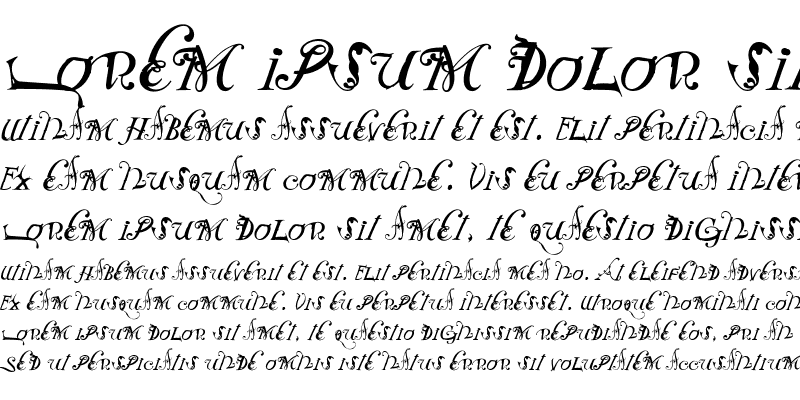 Lorem ipsum dolor sit
Utinam habemus assueverit et est. Elit pertinacia
Ex eam nusquam commune. Vis eu perpetua inter
Lorem ipsum dolor sit amet, te quaestio digniss
Utinam habemus assueverit et est. Elit pertinacia mea no. At eleifend advers
Ex eam nusquam commune. Vis eu perpetua interesset. Utroque nominati con
Lorem ipsum dolor sit amet, te quaestio dignissim repudiandae eos, pri an
Sed ut perspiciatis unde omnis iste natus error sit voluptatem accusantium